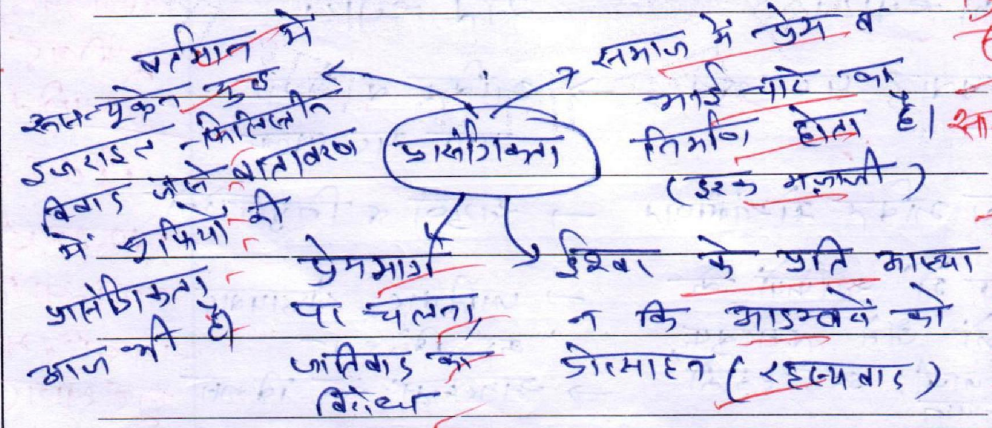 वर्तमान में
रूस-यूक्रेन युद्ध
इजराइल-फिलिस्तीन
विवाद जैसे वातावरण
में सूफियों की
प्रासंगिकता
आज भी है।
प्रासंगिकता
समाज में प्रेम व
भाई-चारे का
निर्माण होता है।
(इश्क मज़ाजी)
प्रेममार्ग
पर चलना,
जातिवाद का
विरोध
ईश्वर के प्रति आस्था
न कि आडम्बरों को
प्रोत्साहन (रहस्यवाद)